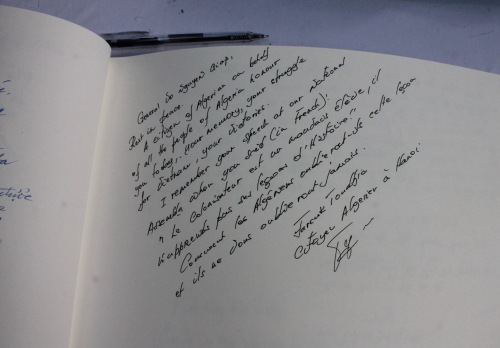 General Vo Nguyen Giap,
Rest in peace.
A citizen of Algeria on behalf
of all the people of Algeria honour
you today, your memory, your struggle
for Vietnam, your victories.
I remember your speech at our National
Assembly when you said (in French):
"Le Colonisateur est un mauvais élève, il
n'apprends pas ses leçons d'Histoire".
Comment les Algériens oublieront-ils cette leçon
et ils ne vous oublieront jamais.
Farouk
Citoyen Algérien à Hanoi